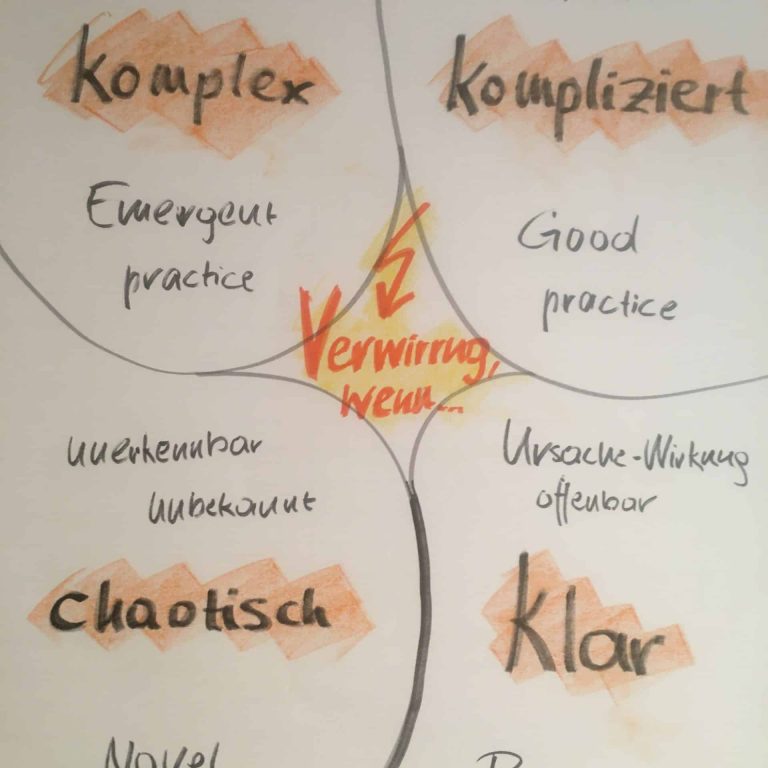 Komplex
Emergent
practice
Kompliziert
Good
practice
Verwirrung,
wenn...
unerkennbar
unbekannt
chaotisch
Ursache-Wirkung
offenbar
Klar
Novel